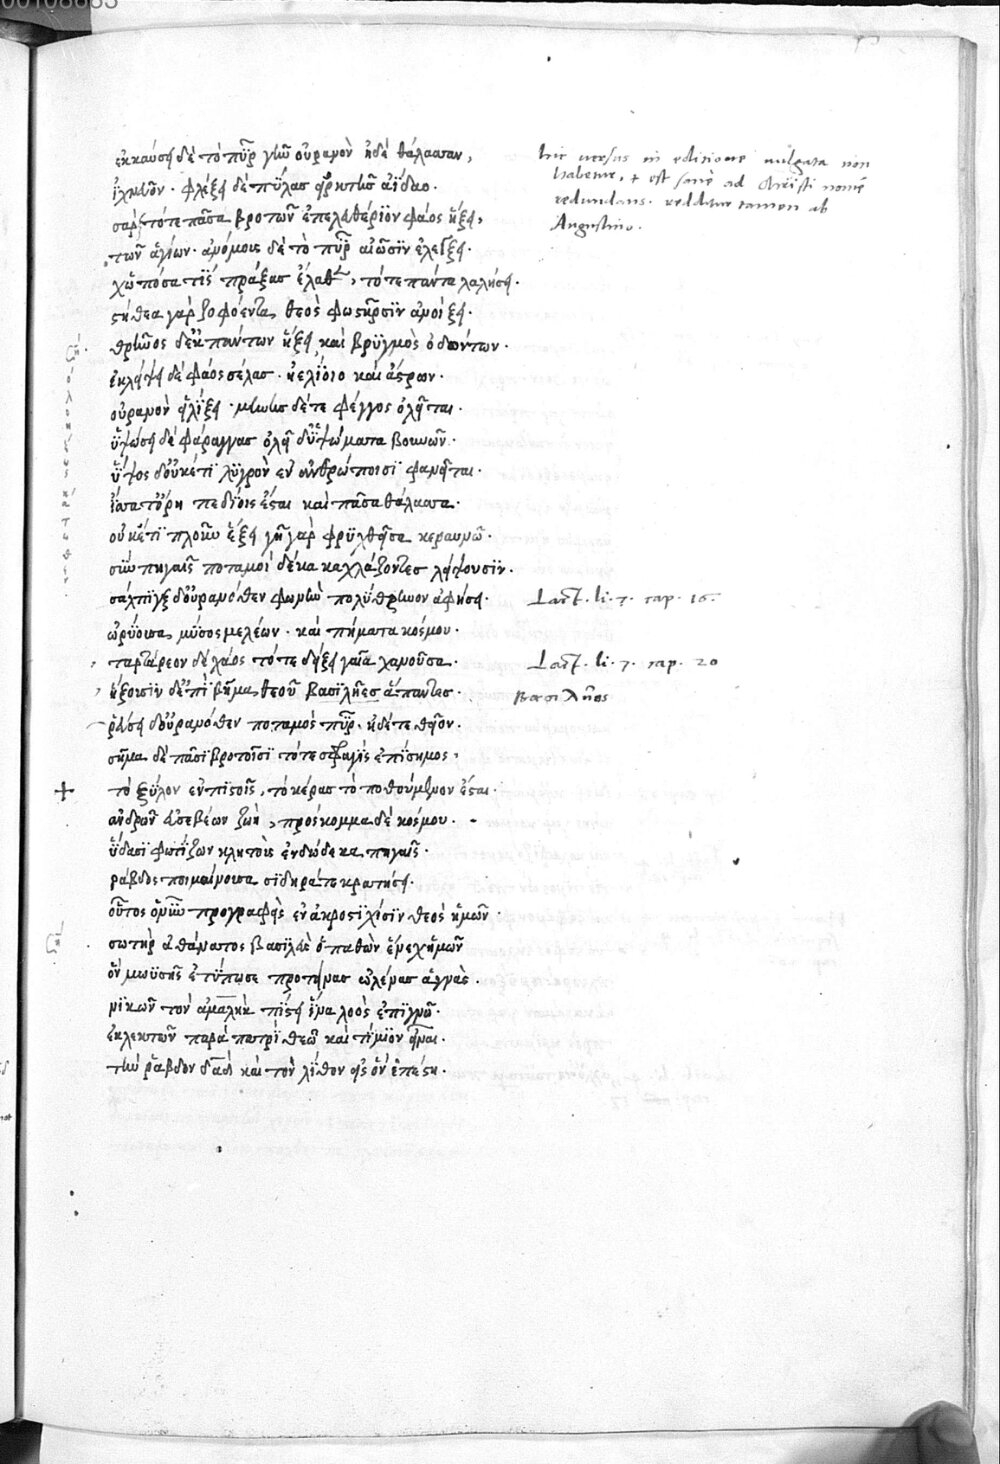 00108683
ἐκκαύσει δὲ τὸ πῦρ γῆν οὐρανὸν ἠδὲ θάλασσαν,
ἰχνεῦον. φλέξει δὲ πύλας εἱρκτῆς ἀΐδαο.
σὰρξ τότε πᾶσα βροτῶν ἐπ' ἐλευθέριον φάος ἥξει,
τῶν ἁγίων. ἀνόμους δὲ τὸ πῦρ αἰῶσιν ἐλέγξει.
χὦπόσα τὶς πράξας ἔλαθεν, τότε πάντα λαλήσει.
στήθεα γὰρ ζοφόεντα, θεὸς φωστῆρσιν ἀνοίξει.
θρῆνος δ' ἐκ πάντων ἥξει, καὶ βρυγμὸς ὀδόντων.
ἐκλείψει δὲ φάος σέλας. ἠελίοιο καὶ ἄστρων.
οὐρανὸν εἱλίξει. μήνης δέ τε φέγγος ὀλεῖται.
ὑψώσει δὲ φάραγγας ὀλεῖ δ' ὑψώματα βουνῶν.
ὕψος δ' οὐκέτι λυγρὸν ἐν ἀνθρώποισι φανεῖται.
ἶσα τ' ὄρη πεδίοις ἔσται καὶ πᾶσα θάλασσα.
οὐκέτι πλοῦν ἕξει γῆ γὰρ φρυχθεῖσα κεραυνῷ.
σὺν πηγαῖς ποταμοί δὲ κα καχλάζοντες λείψουσιν.
σάλπιγξ δ' οὐρανόθεν φωνὴν πολύθρηνον ἀφήσει.
ὠρύουσα, μύσος μελέων. καὶ πήματα κόσμου.
ταρτάρεον δὲ χάος τότε δείξει γαῖα χανοῦσα.
ἥξουσιν δ' ἐπὶ βῆμα θεοῦ βασιλῆες ἅπαντες.
ῥεύσει δ' οὐρανόθεν ποταμὸς πῦρ. ἠδέ τε θεῖον.
σῆμα δὲ πᾶσι βροτοῖσι τότε σφραγὶς ἐπίσημος,
τὸ ξύλον ἐν πιστοῖς, τὸ κέρας τὸ ποθούμενον ἔσται.
ἀνδρῶν εὐσεβέων ζωὴ, πρόσκομμα δὲ κόσμου.
ὕδασι φωτίζων κλητοὺς ἐν δώδεκα πηγαῖς.
ῥάβδος ποιμαίνουσα σιδηρείη κρατήσει.
οὗτος ὁ νῦν προγραφεὶς ἐν ἀκροστιχίσιν θεὸς ἡμῶν.
σωτὴρ ἀθάνατος βασιλεὺς ὁ παθὼν ἕνεχ' ἡμῶν
ὃν μωϋσῆς ἐτύπωσε προτείνας ὠλένας ἁγνὰς.
νικῶν τὸν ἀμαλὴκ πίστει ἵνα λαὸς ἐπιγνῷ.
ἐκλεκτὸν παρὰ πατρὶ θεῷ καὶ τίμιον εἶναι.
τὴν ῥάβδον δαδ καὶ τὸν λίθον
hic uersus in editione uulgata non
habetur, + est sanè ad Christi nomē
redundans. redditur tamen ab
Augustino.
Lact. li. 7. cap. 16.
Lact. li. 7. cap. 20
βασιλῆος